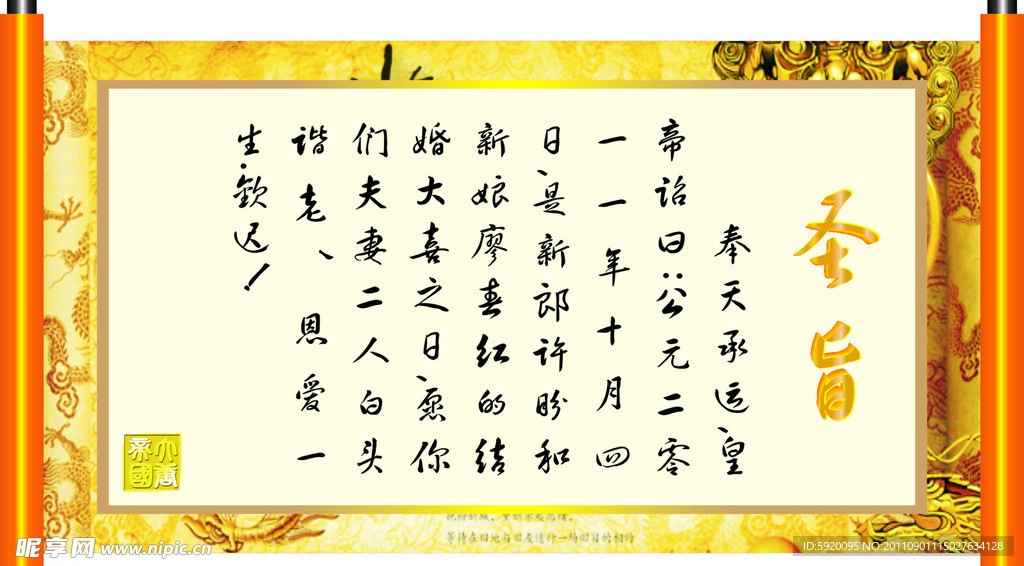 圣旨
奉天承运、皇
帝诏曰:公元二零
一一年十月四
日、是新郎许盼和
新娘廖春红的结
婚大喜之日、愿你
们夫妻二人白头
谐老、恩爱一
生.钦迟!
大唐
帝国
等待在旧地与旧友进行一场旧目的相约
昵享网 www.nipic.cn
ID:5920095 NO:20110901115027634128